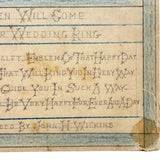 EN WILL COME
R WEDDING RING
LET, EMBLEM OF THAT HAPPY DAY
THAT WILL BIND YOU IN EVERY WAY
GUIDE YOU IN SUCH A WAY
BE VERY HAPPY FOR EVER AND A DAY
SED BY JOHN H. WICKINS